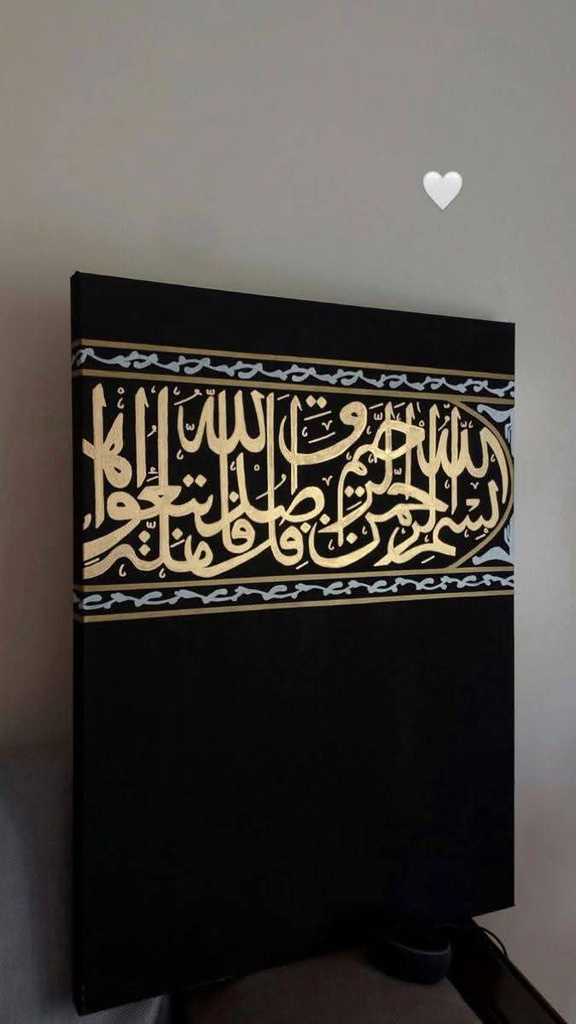 بسم الله الرحمن الرحيم قل صدق الله فاتبعوا ملة